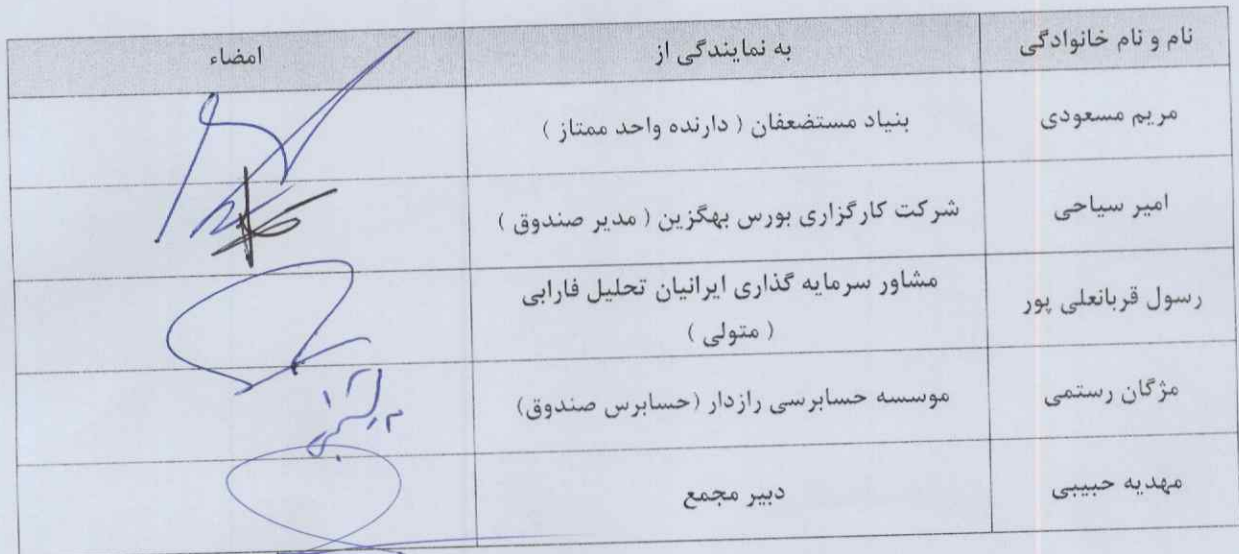 نام و نام خانوادگی به نمایندگی از امضاء
مریم مسعودی بنیاد مستضعفان ( دارنده واحد ممتاز )
امیر سیاحی شرکت کارگزاری بورس بهگزین ( مدیر صندوق )
رسول قربانعلی پور مشاور سرمایه گذاری ایرانیان تحلیل فارابی
( متولی )
مژگان رستمی موسسه حسابرسی رازدار (حسابرس صندوق)
مهدیه حبیبی دبیر مجمع